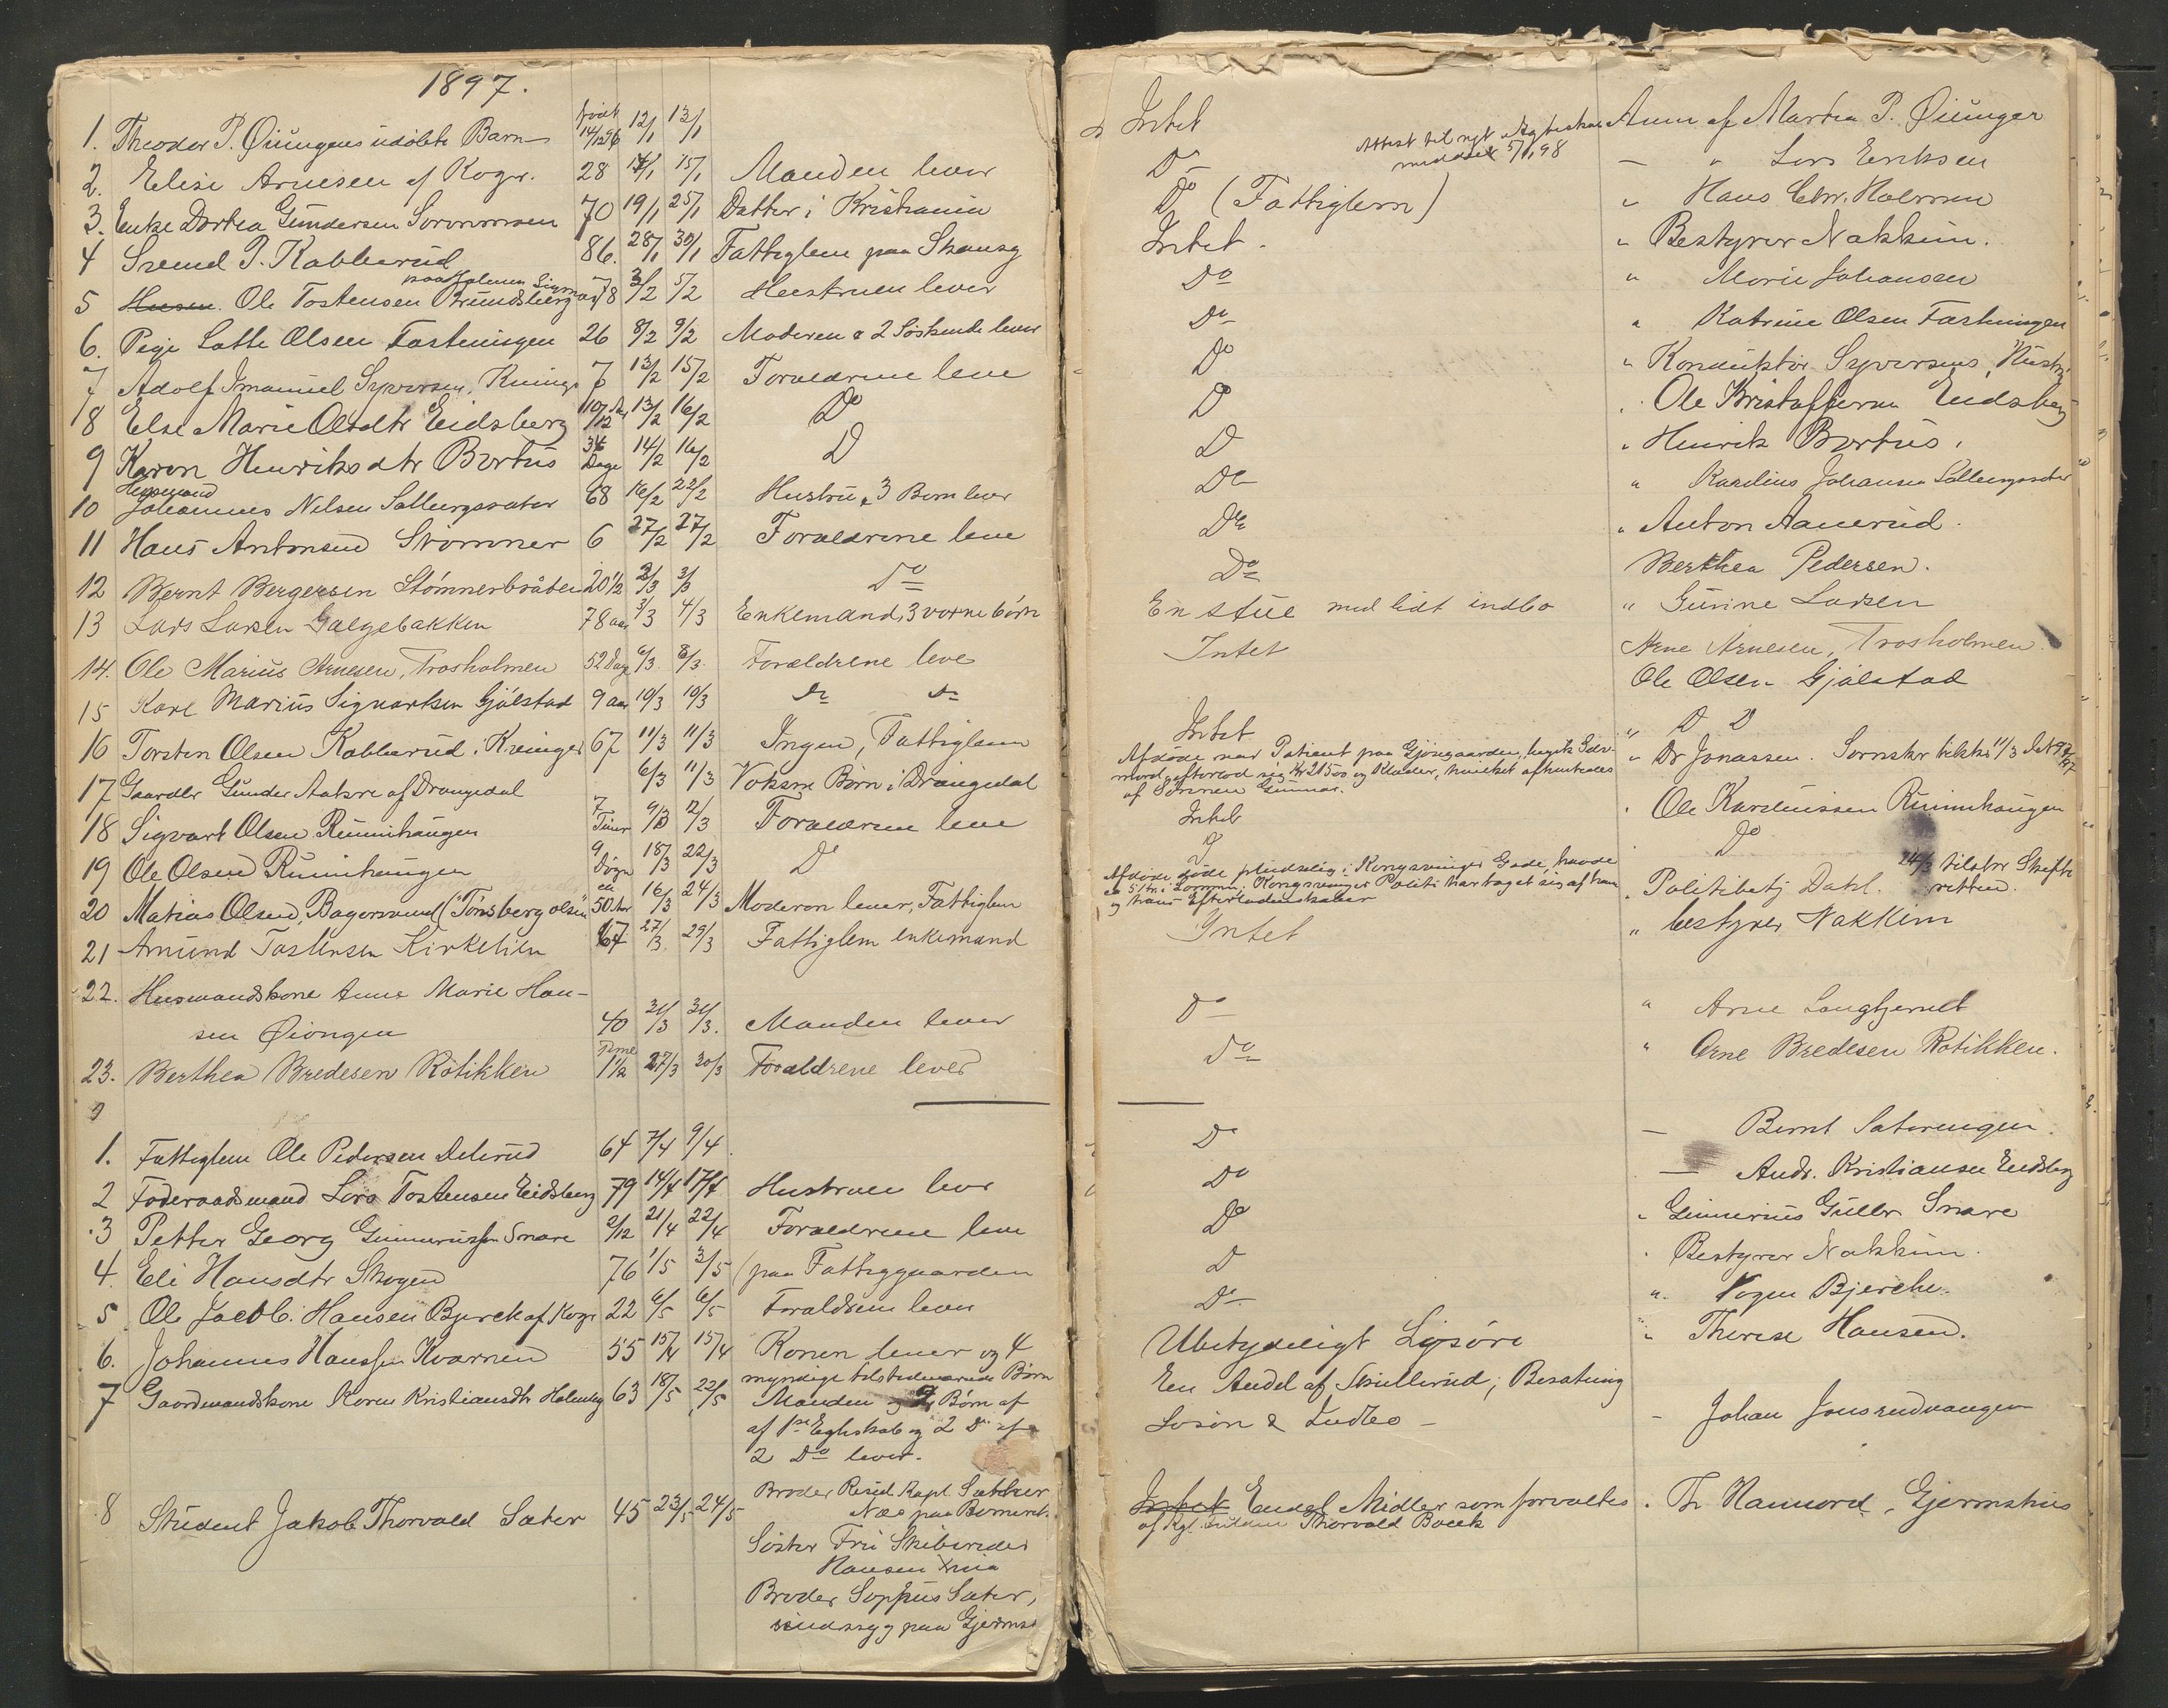 1897.
1. Theodor P. Øiungens udöbte Barn født 14/12 96 12/1 13/1
2. Elise Arnesen af Kogr. 28 15/1 Manden lever
3. Enke Dortea Gundersen 70 19/1 25/1 Datter i Kristiania
4 Svend P. Kabberud 86. 28/1 30/1 Fattiglem paa Skansg
5 Ole Tostensen Grundsberg 78 3/2 5/2 Hustruen lever
6. Pige Lotte Olsen Fastningen 26 8/2 9/2 Moderen & 2 Söskende lever
7 Adolf Imanuel Syversen, Kvinge 7 13/2 15/2 Forældrene leve
8 Else Marie Olsdtr Eidsberg 13/2 16/2 Do
9 Karen Henriksdtr Bertus 36 Dage 14/2 16/2 D
10 Husmand Johannes Nilsen 68 16/2 22/2 Hustru & 3 Børn lever
11 Hans Antonsen Strömner 6 27/2 27/2 Forældrene leve
12 Bernt Bergersen Stömnerbråten 20 1/2 2/3 3/3 Do
13 Lars Larsen Galgebakken 78 aar 3/3 4/3 Enkemand, 3 voxne börn
14. Ole Marius Arnesen, Trosholmen 52 Dage 6/3. 8/3. Forældrene leve
15 Karl Marius Sigvartsen Gjölstad 9 aar 10/3 10/3 do do
16 Torsten Olsen Kabberud i Kvinger 67 11/3 11/3 Ingen, Fattiglem
17 Gaardbr Gunder Aakre af Drangedal 6/3 11/3 Voksne Børn i Drangedal
18 Sigvart Olsen Runnhaugen 7 Timer 9/3 12/3 Forældrene leve
19 Ole Olsen Runnhaugen 9 Døgn 18/3 22/3 Do
20 Matias Olsen, Bagersvend ("Tønsberg olsen" 50 Aar 16/3 24/3 Moderen lever, Fattiglem
21 Amund Tostensen Kirkelien 67 27/3 29/3 Fattiglem enkemand
22. Husmandskone Anne Marie Han-
sen Øiongen 40 31/3 31/3. Manden lever
23. Berthea Bredesen Rötikken 1 1/2 27/3 30/3 Forældrene lever
1. Fattiglem Ole Pedersen Delerud 64 7/4 9/4
2 Föderaadsmand Lars Tostensen Eidsberg 79 14/4 17/4 Hustruen lever
3 Petter Georg Gunneriussen Snare 2/12 21/4 22/4 Forældrene leve
4. Eli Hansdtr Skogen 76 1/5 3/5 (paa Fattiggaarden
5 Ole Jacob Hansen Bjerck af Kogr 22 6/5 6/5 Forældrene lever
6. Johannes Hanssen Kvarnen 55 15/4 15/4 Konen lever og 4
myndige tilstedeværende Børn
7 Gaardmandskone Karen Kristiansdtr 63 18/5 22/5 Manden og Børn af
af 1ste Egteskab og 2 Do af
2 Do lever.
8 Student Jakob Thorvald Sæter 45 23/5 24/5 Broder Resid. Kapl. Sæther
Næs paa Romerik.
Söster Fru Skibsreder
Hansen Xnia
Broder Sophus Sæter,
sindssyg paa Gjermss
Intet Anm af Martin P. Øiunger
Do Attest til nyt Ægteskab meddelt 5/1 98 — " Lars Eriksen
Do (Fattiglem) " Hans Chr. Holmen
Intet. " Bestyrer Nakkim.
Do " Morie Johansen
Do " Katrine Olsen Fastningen
Do " Konduktör Syversens Hustru
D " Ole Kristoffersen Eidsberg
D " Henrik Bertus.
Do " Karelius Johansen
Do " Anton Aamerud.
Do Berthea Pedersen.
En stue med lidt indbo " Gurine Larsen
Intet Arne Arnesen, Trosholmen.
Ole Olsen Gjölstad
Intet " D D
Afdöde var Patient paa Gjøsegaarden, begik Selv-
mord, efterlod sig Kr 215 00 og Klæder, hvilket afhentedes
af Sönnen Gunnar. " Dr Jonassen.
Intet " Ole Kareliussen Runnhaugen
D " Do
Afdøde døde pludselig i Kongsvinger Gade, havde
ca 51 kr. i Lommen; Kongsvinger Politi har taget sig af ham
og hans Efterladenskaber " Politibetj. Dahl. 24/3 tilskr Skifte
retten.
Intet " bestyrer Nakkim
Do " Arne Langtjernet
Do " Arne Bredesen Rötikken.
Do — Bernt Saterengen.
Do — Andr. Kristiansen Eidsberg
Do " Gunnerius Gulbr. Snare
D " Bestyrer Nakkim.
Do " Bjercke.
Ubetydeligt Løsöre " Therese Hansen.
En Andel af Skullerud; Besætning
Løsøre & Indbo — — Johan Jonsrudvangen
Intet Endel Midler som forvaltes
af Kgl. Thorvald Boeck . Th Hamsord, Gjermshus